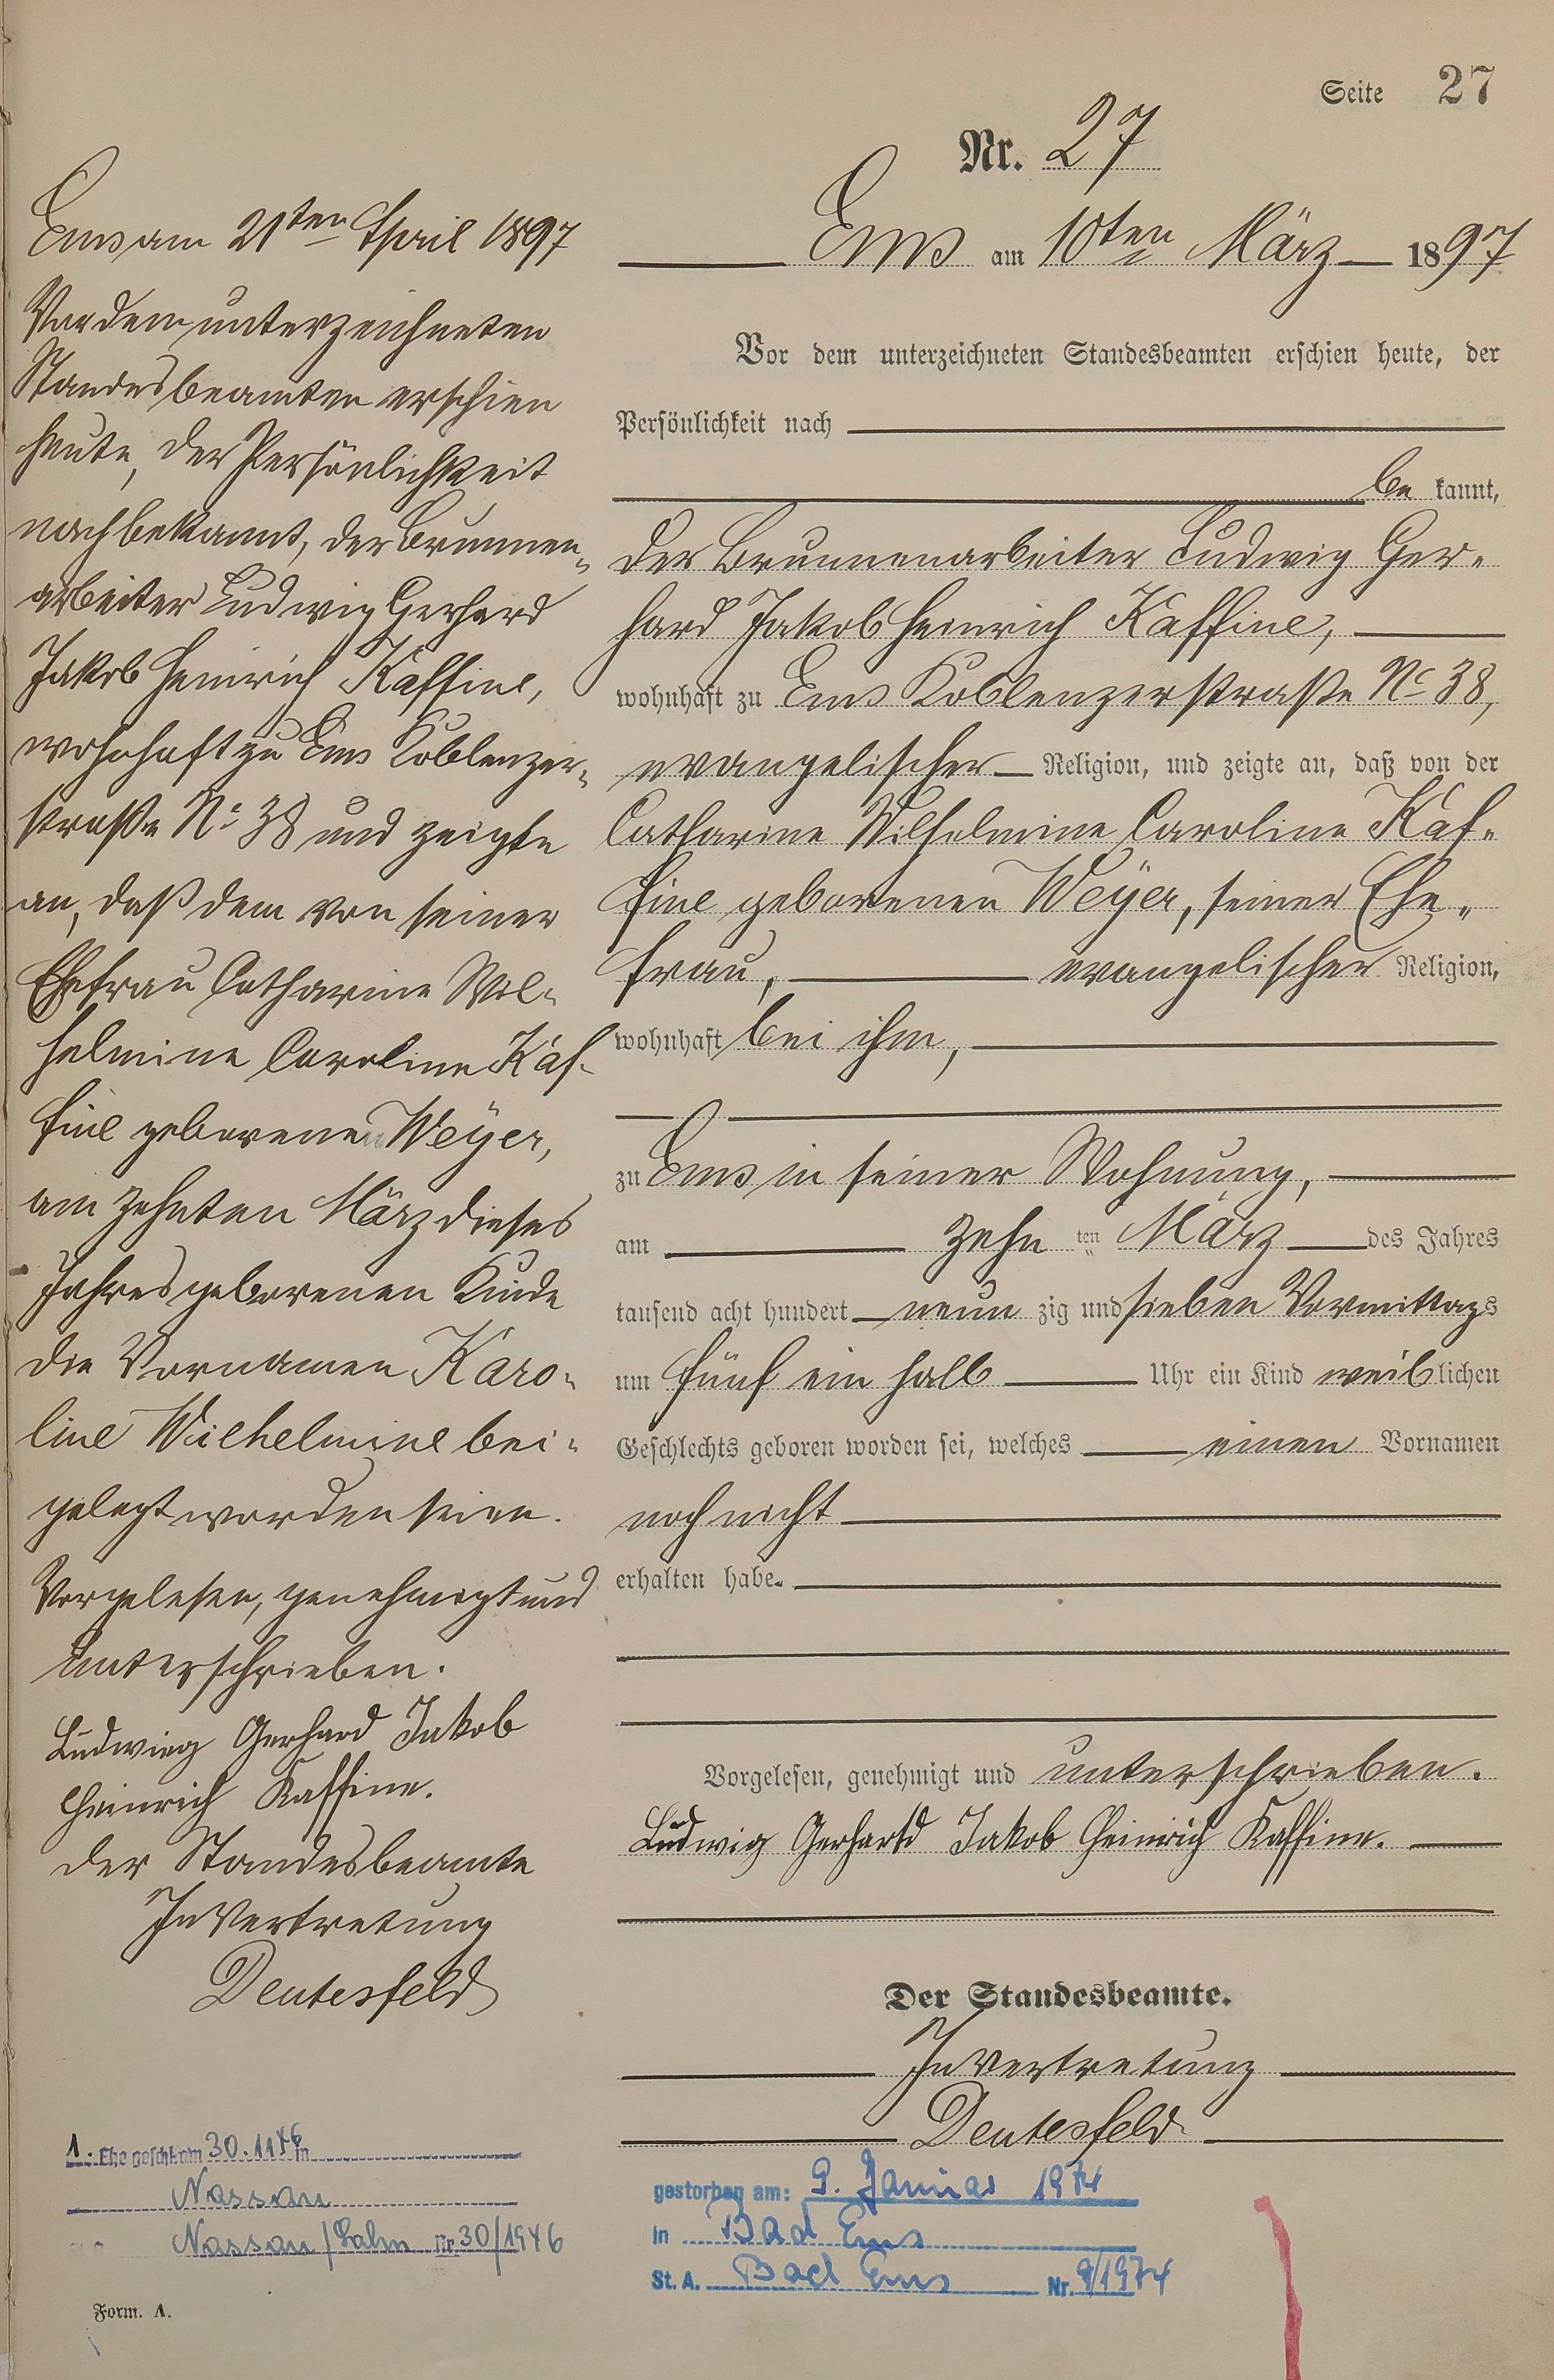 Seite 27
Nr. 27
Ems am 21ten April 1897
Vor dem unterzeichneten
Standesbeamten erschien
heute, der Persönlichkeit
nach bekannt, der Brunnen-
arbeiter Ludwig Gerhard
Jakob Heinrich Kaffine,
wohnhaft zu Ems Koblenzer-
straße No 38 und zeigte
an, daß dem von seiner
Ehefrau Catharine Wil-
helmine Caroline Kaf-
fine geborenen Weyer,
am zehnten März dieses
Jahres geborenen Kinde
die Vornamen Karo-
line Wilhelmine bei-
gelegt worden seien.
Vorgelesen, genehmigt und
unterschrieben.
Ludwieg Gerhard Jakob
Heinrich Kaffine.
Der Standesbeamte
In Vertretung
Deutesfeld
Ems am 10ten März 1897
Vor dem unterzeichneten Standesbeamten erschien heute, der
Persönlichkeit nach
be kannt,
der Brunnenarbeiter Ludwig Ger-
hard Jakob Heinrich Kaffine,
wohnhaft zu Ems Koblenzerstraße No 38,
evangelischer Religion, und zeigte an, daß von der
Catharine Wilhelmine Caroline Kaf-
fine geborenen Weyer, seiner Ehe-
frau, evangelischer Religion,
wohnhaft bei ihm,
zu Ems in seiner Wohnung,
am zehn ten März des Jahres
tausend acht hundert neun zig und sieben Vormittags
um fünf ein halb Uhr ein Kind weiblichen
Geschlechts geboren worden sei, welches einen Vornamen
noch nicht
erhalten habe.
Vorgelesen, genehmigt und unterschrieben.
Ludwig Gerhartd Jakob Heinrich Kaffine.
Der Standesbeamte.
In Vertretung
Deutesfeld
1. Ehe geschl. am 30.11 46 in
Nassau
Nassau/Lahn Nr. 30/1946
gestorben am: 9. Januar 1974
in Bad Ems
St. A. Bad Ems Nr. 9/1974
Form. A.